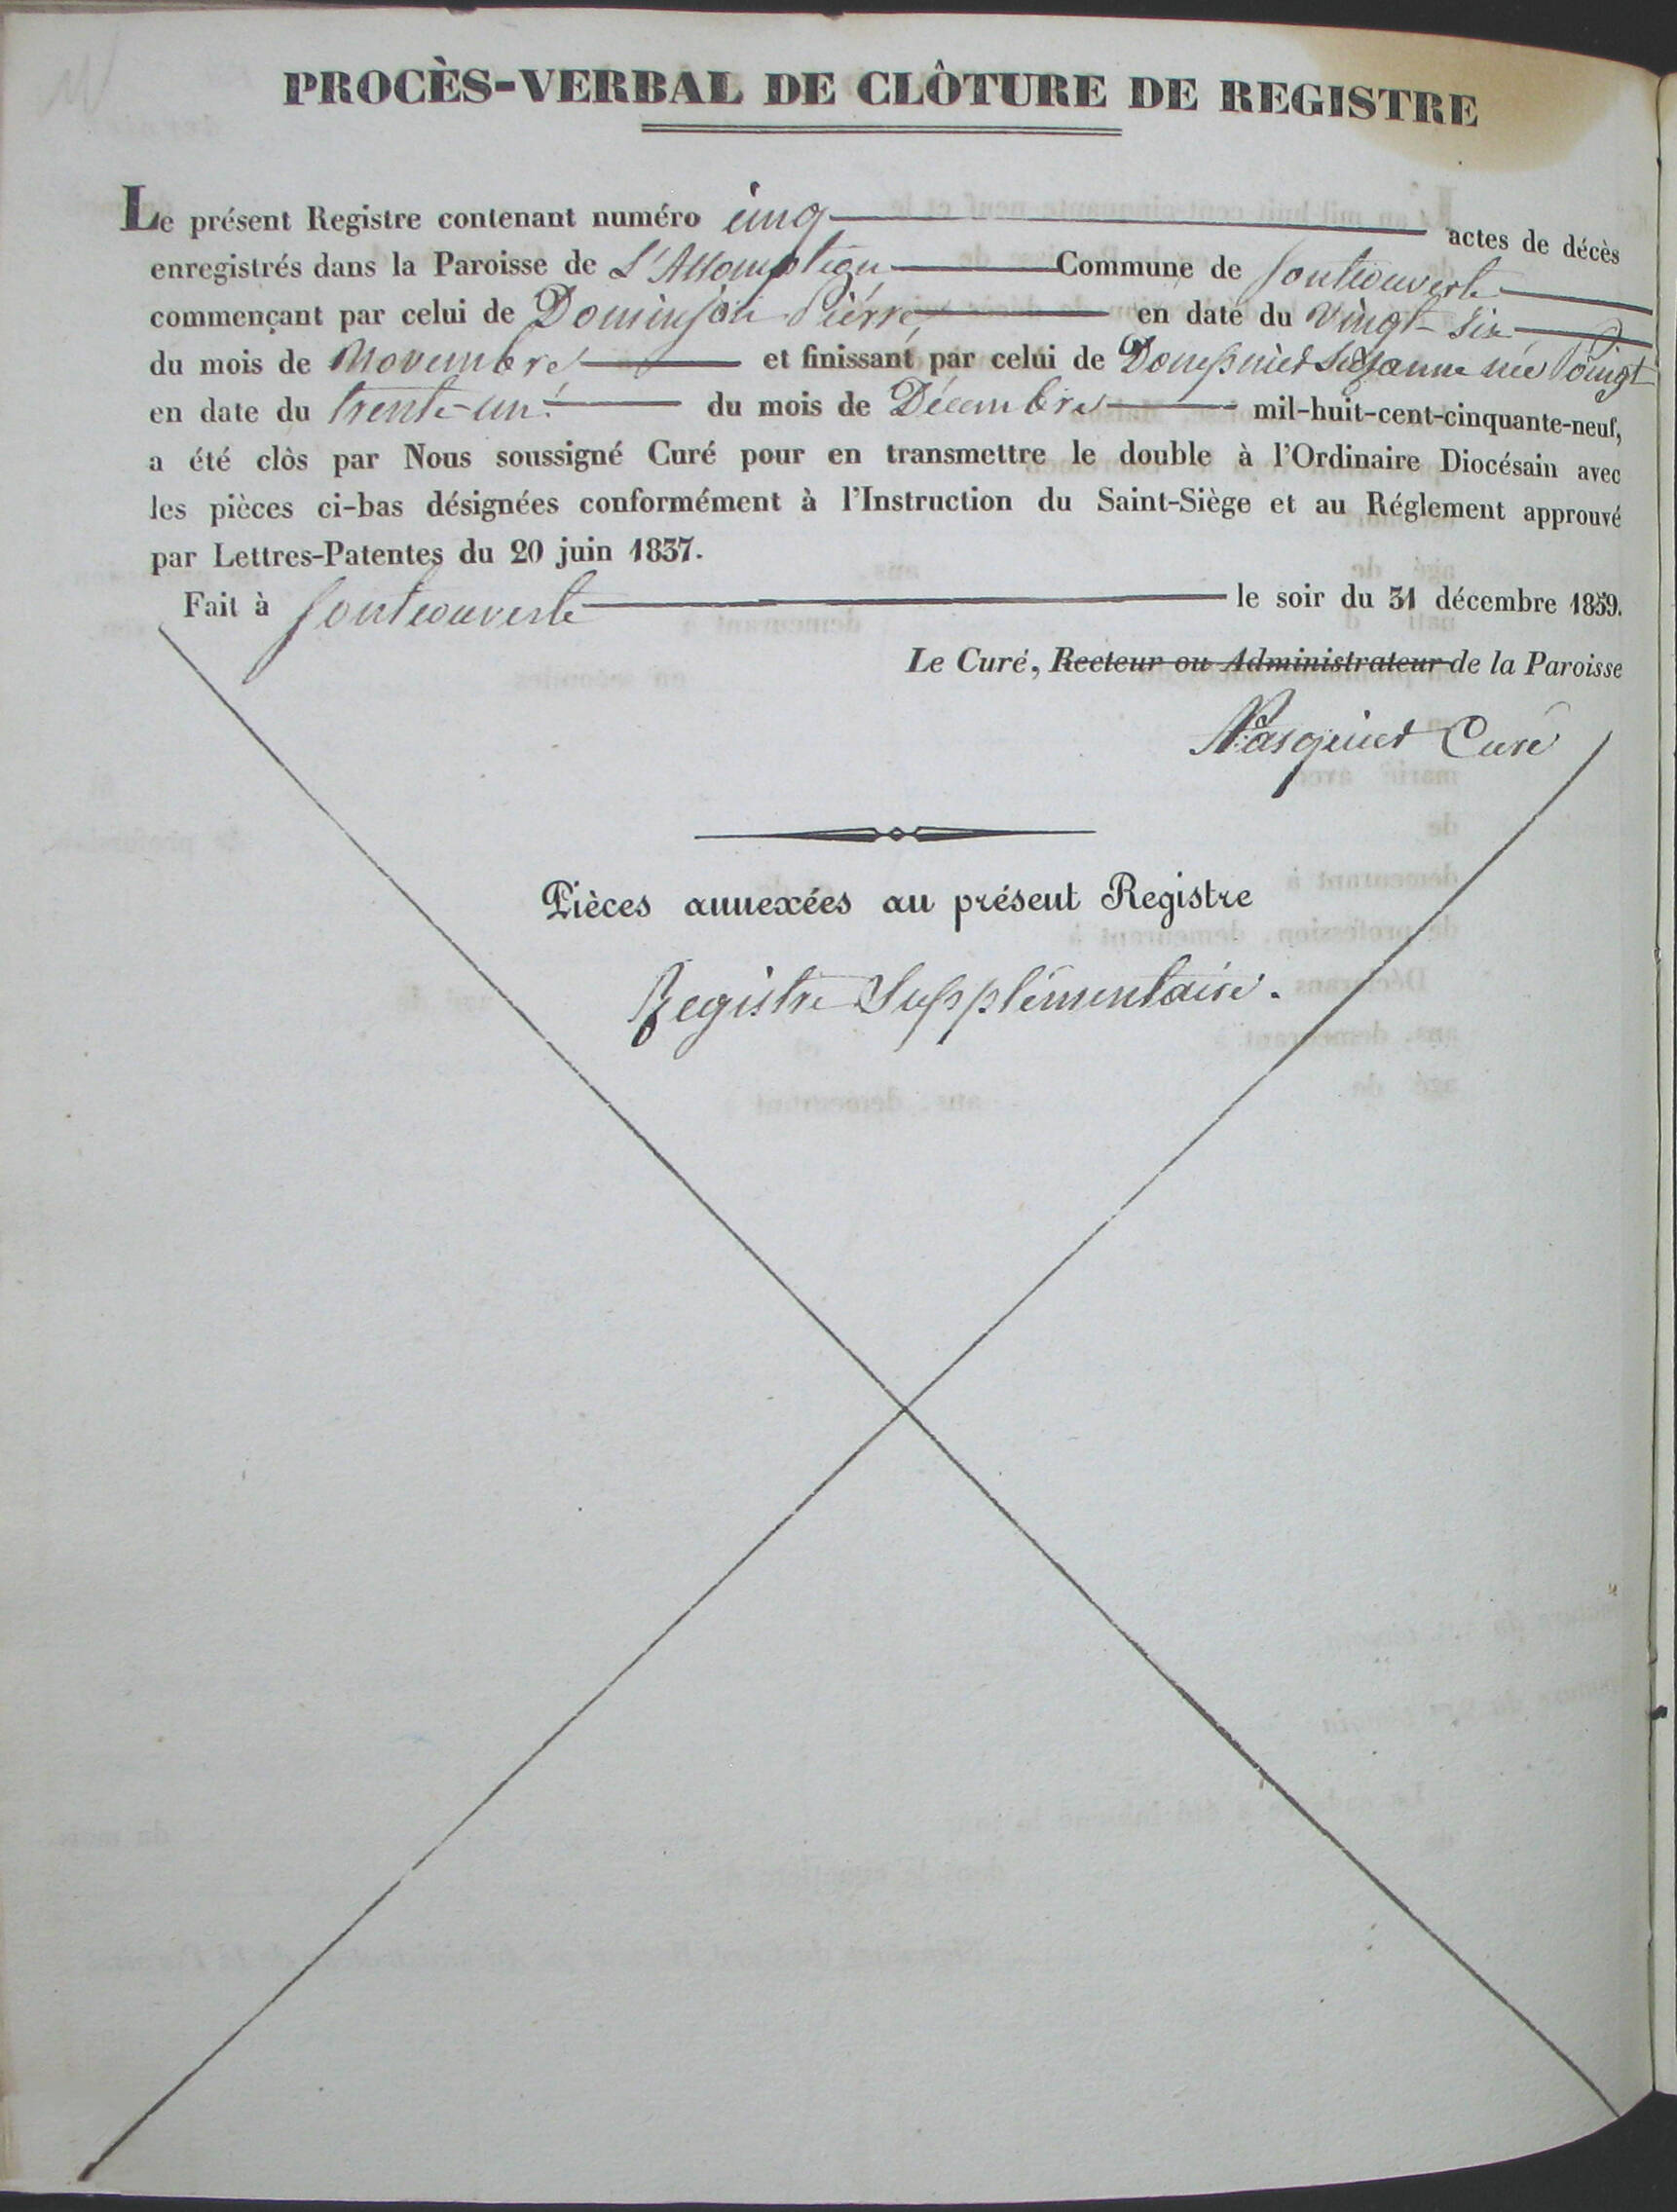 PROCÈS-VERBAL DE CLÔTURE DE REGISTRE
Le présent Registre contenant numéro cinq actes de décès
enregistrés dans la Paroisse de L'Assomption Commune de Fontcouverte
commençant par celui de Dominjon Pierre en date du vingt-six
du mois de Novembre et finissant par celui de Dompnier Suzanne née
en date du trente-un du mois de Décembre mil-huit-cent-cinquante-neuf,
a été clòs par Nous soussigné Curé pour en transmettre le double à l'Ordinaire Diocésain avec
les pièces ci-bas désignées conformément à l'Instruction du Saint-Siège et au Réglement approuvé
par Lettres-Patentes du 20 juin 1837.
Fait à Fontcouverte le soir du 31 décembre 1859.
Le Curé, Recteur ou Administrateur de la Paroisse
Pasquier Curé
Pièces annexées au présent Registre
Registre Supplémentaire.